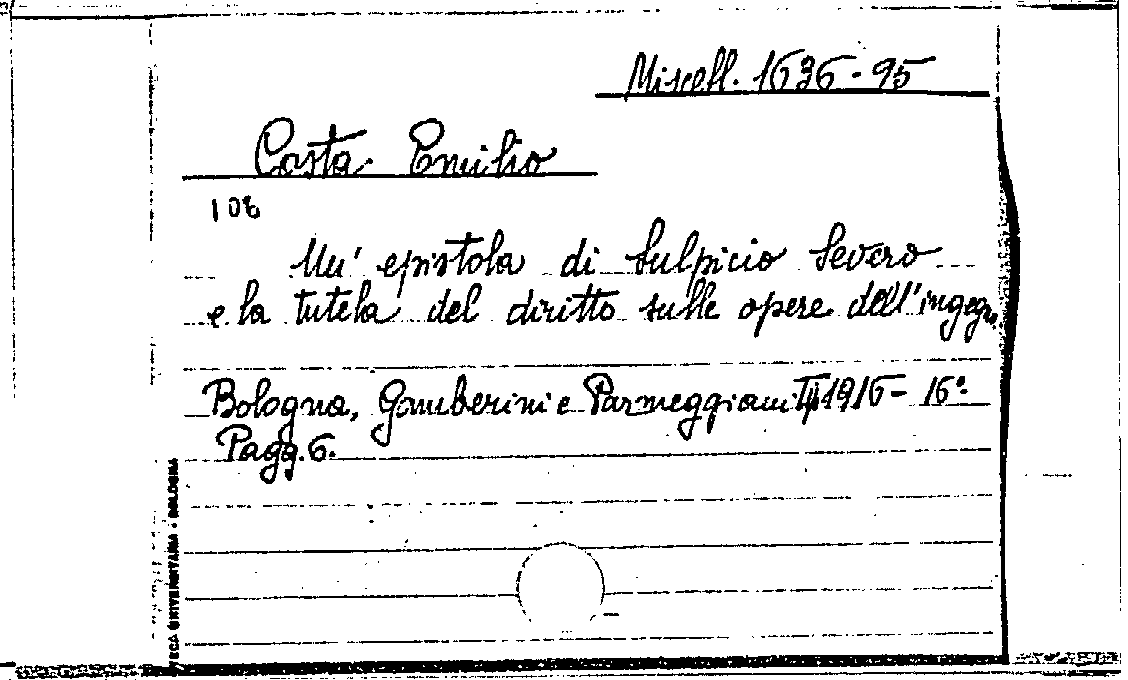 Miscell. 1636-95
Costa Emilio
108
Un' epistola di Sulpicio Severo
e la tutela del diritto sulle opere dell'ingegn.
Bologna, Gamberini e Parmeggiani, 1916 - 16°.
Pagg. 6.
TECA UNIVERSITARIA - BOLOGNA